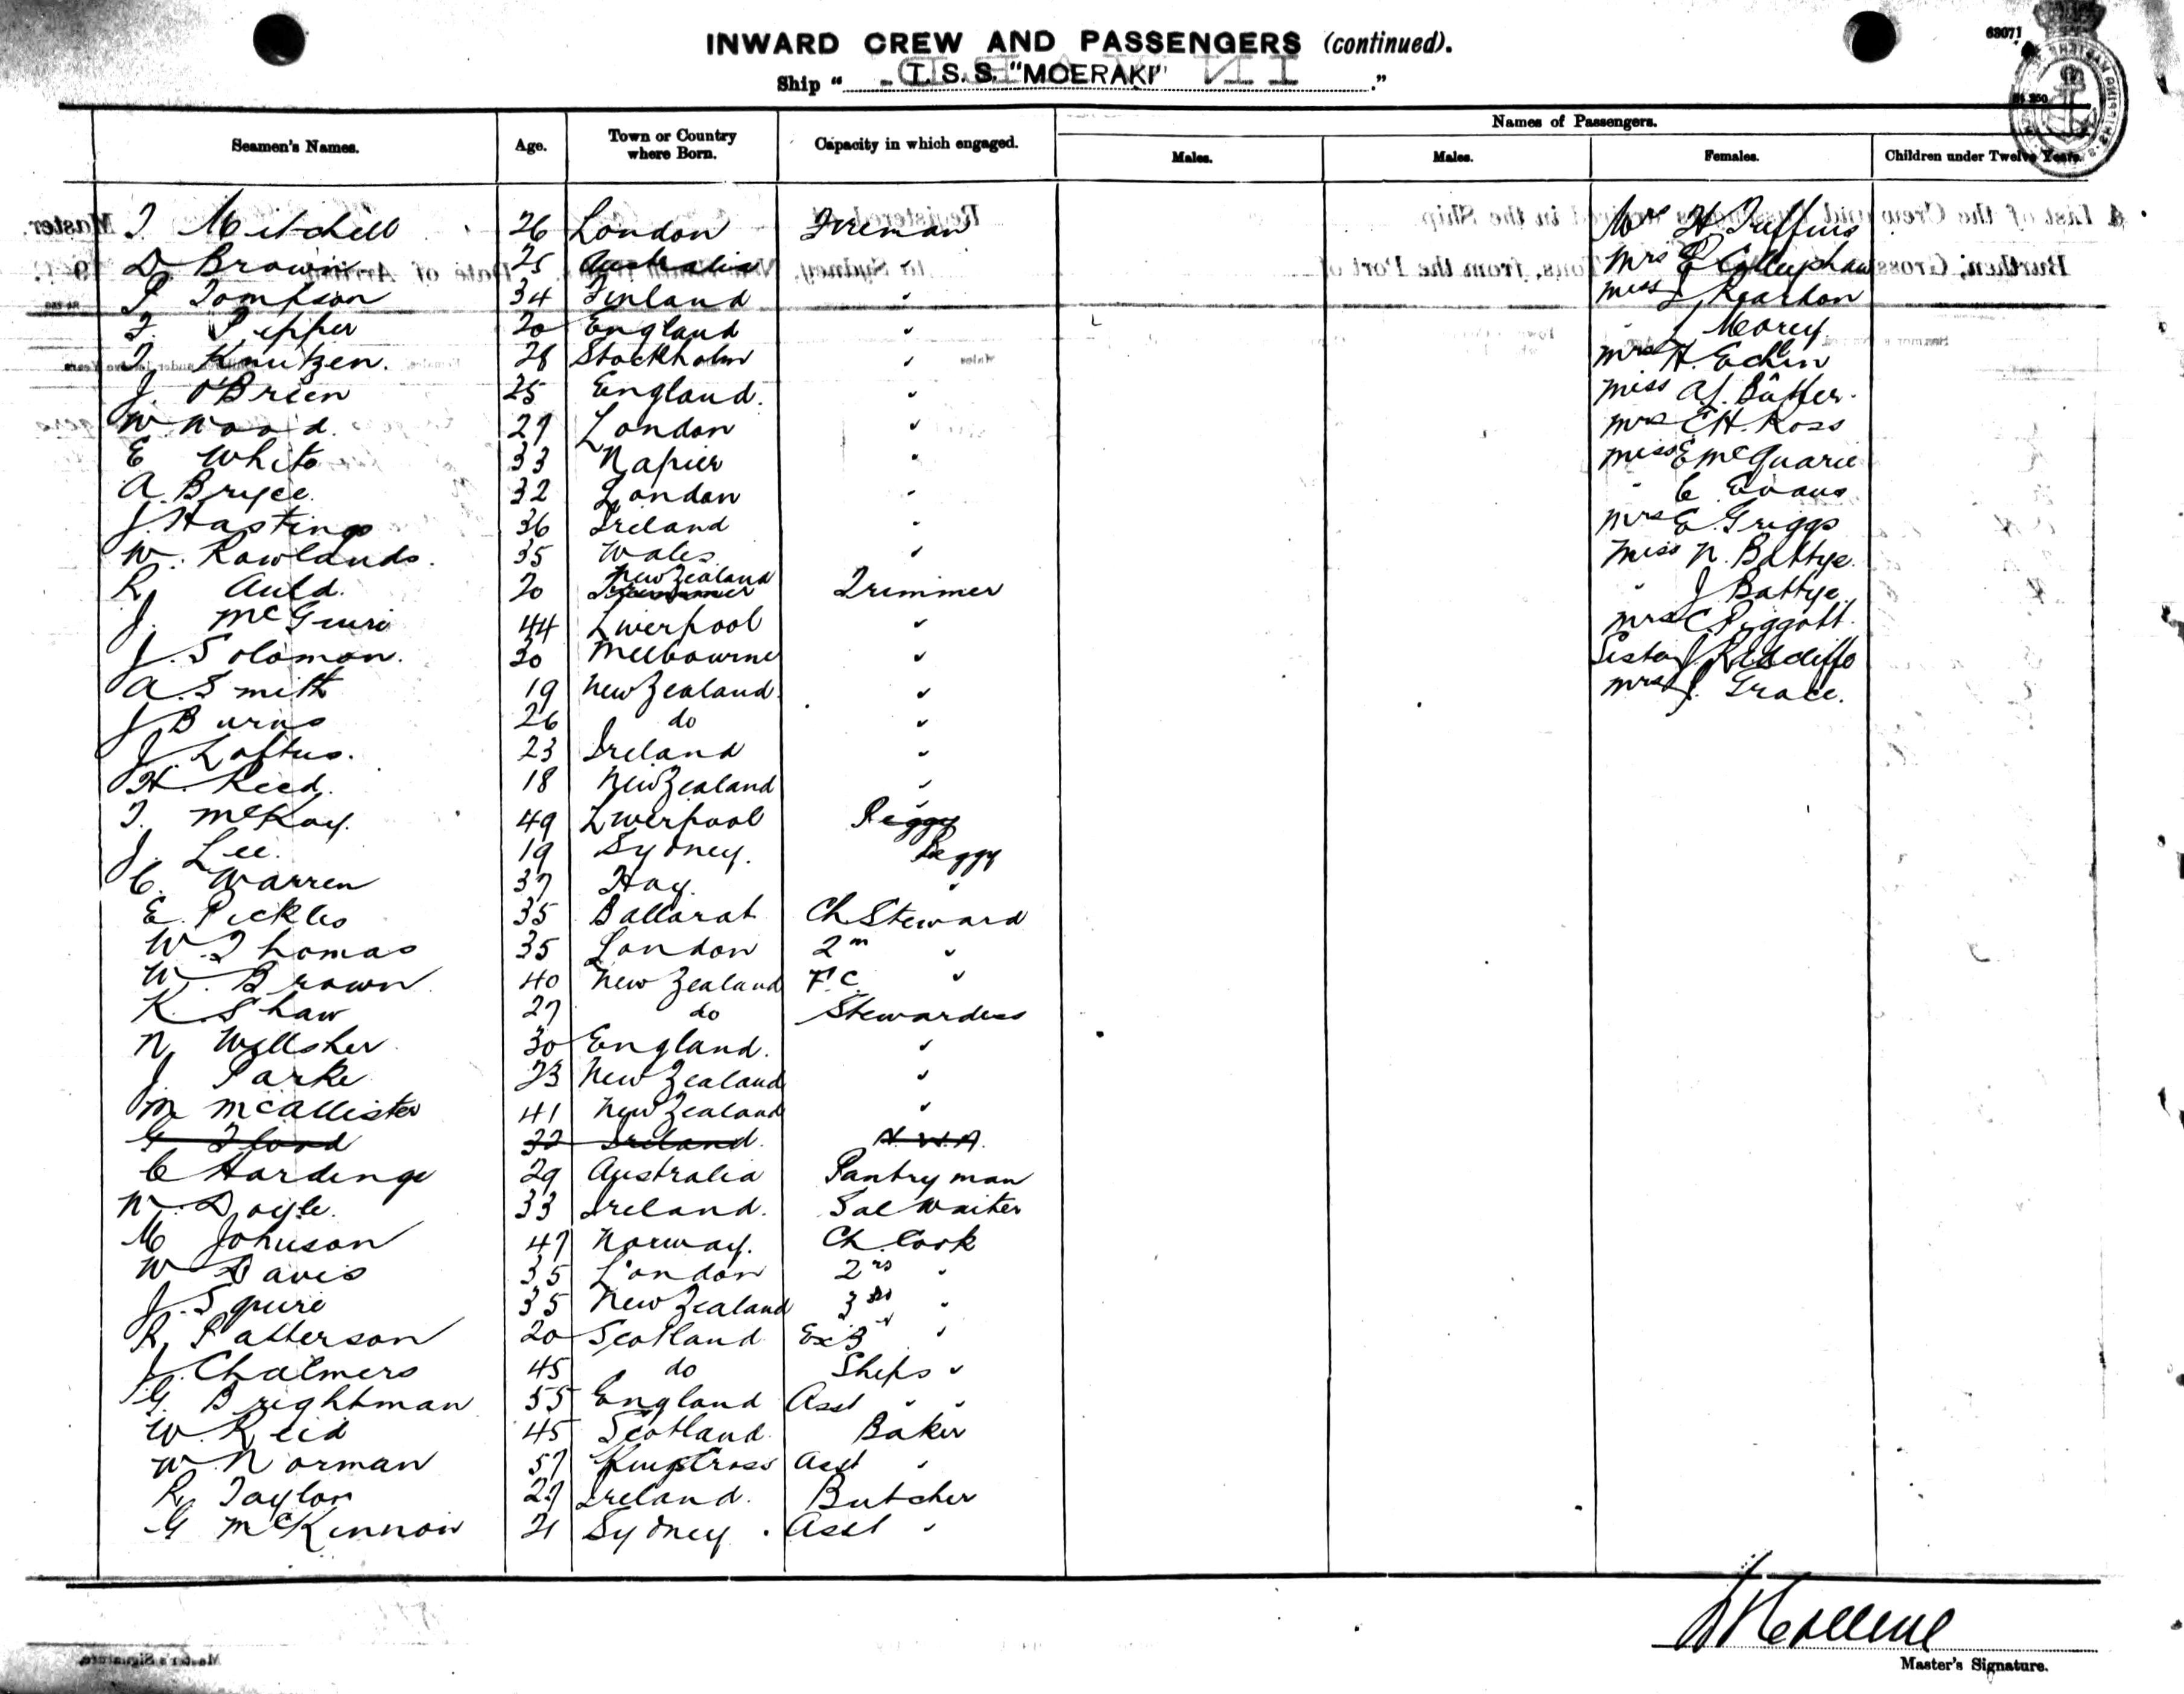 INWARD CREW AND PASSENGERS (continued).
63071
Ship " T. S. S. "MOERAKI" ."
Names of Passengers.
Seamen's Names. Age. Town or Country where Born. Capacity in which engaged. Males. Males. Females. Children under Twelve Years.
T. Mitchell 26 London Fireman Mrs H.
D Brown 25 Australia " Mrs
P Tompson 34 Finland " Miss Reardon
F. Pepper 20 England " " Morey
T. Knutzen. 28 Stockholm " Mrs H. Echlin
J. O'Brien 25 England. " Miss A.
W Wood. 27 London " Mrs E H. Ross
E White 33 Napier " Miss E McQuarie
A. Bryce. 32 London " " C Evans
J. Hastings 36 Ireland " Mrs E. Griggs
W. Rowlands. 35 Wales " Miss N. Battye.
R Auld. 20 New Zealand Trimmer " J Battye
J. McGuire 44 Liverpool " Mrs C. Piggott.
J. Solomon. 30 Melbourne " Sister J
A. Smith 19 New Zealand. " Mrs J. Grace.
J Burns 26 do "
J. Loftus. 23 Ireland "
H. Reed. 18 New Zealand "
T. McKay. 49 Liverpool " Peggy
J. Lee. 19 Sydney. Peggy
C. Warren 37 Hay. "
E. Pickles 35 Ballarat Ch Steward
W. Thomas 35 London 2nd "
W. Brown 40 New Zealand F. C. "
K. Shaw 27 do Stewardess
N Willsher 30 England. "
J Parke 23 New Zealand "
M McAllister 41 New Zealand "
G Flood 32 Ireland.
C Hardinge 29 Australia Pantryman
W. Doyle. 33 Ireland. Sal Waiter
M Johnson 47 Norway. Ch. Cook
W Davis 35 London 2nd "
J. Squire 35 New Zealand 3rd "
R. Patterson 20 Scotland Ex 3rd "
J. Chalmers 45 do Ships "
G. Brightman 55 England Asst " "
W. Reid 45 Scotland. Baker
W Norman 57 Asst "
R. Taylor 27 Ireland. Butcher
G McKinnon 21 Sydney. Asst "
Master's Signature.